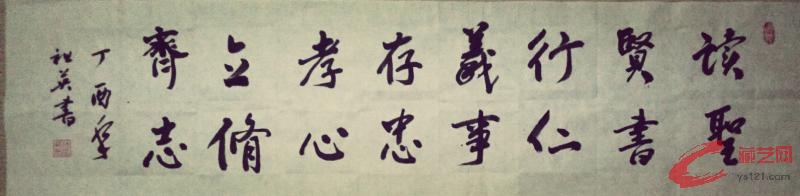 读聖
賢書
行仁
義事
存忠
孝心
立脩
齊志
丁酉季
英書
艺网
ys121.com